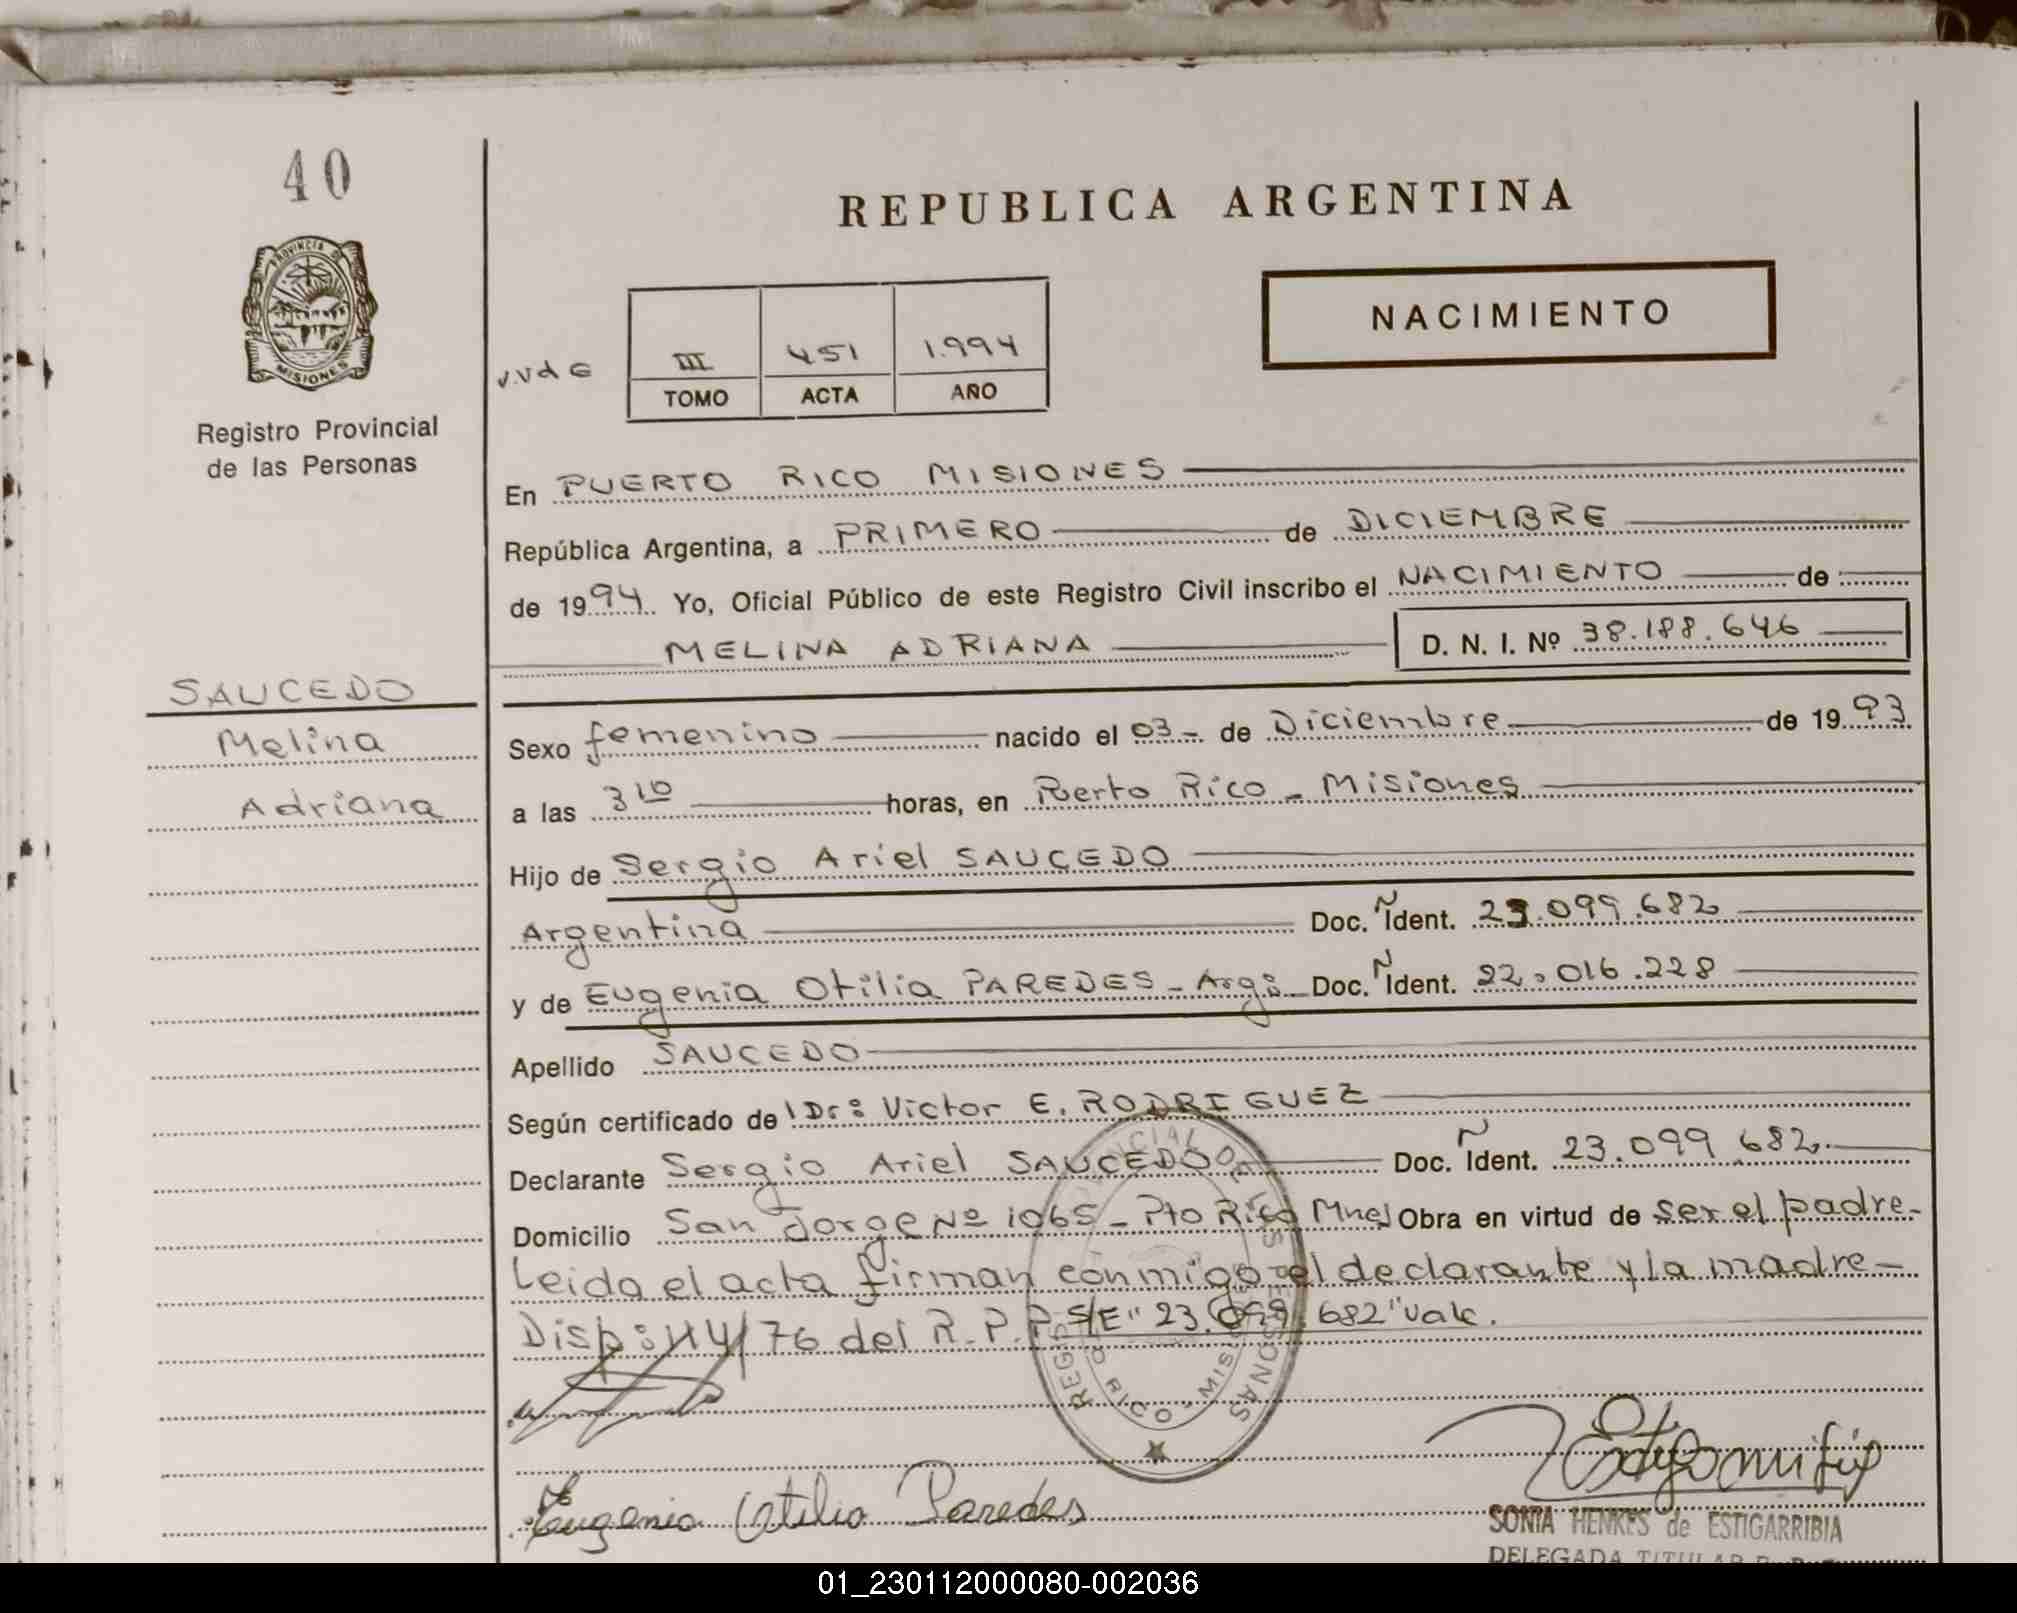 40
PROVINCIA DE
MISIONES
Registro Provincial
de las Personas
SAUCEDO
Melina
Adriana
REPUBLICA ARGENTINA
NACIMIENTO
III 451 1.994
TOMO ACTA AÑO
En PUERTO RICO MISIONES
República Argentina, a PRIMERO de DICIEMBRE
de 1994. Yo, Oficial Público de este Registro Civil inscribo el NACIMIENTO de
MELINA ADRIANA D. N. I. Nº 38.188.646
Sexo femenino nacido el 03- de Diciembre de 1993.
a las 3 10 horas, en Puerto Rico - Misiones
Hijo de Sergio Ariel SAUCEDO
Argentina Doc. Ident. 23.099.682
y de Eugenia Otilia PAREDES - Arg: Doc. Ident. 22.016.228
Apellido SAUCEDO
Según certificado de Dr: Victor E. RODRIGUEZ
Declarante Sergio Ariel SAUCEDO Doc. Ident. 23.099.682.
Domicilio San Jorge Nº 1065 - Pto Rico Mnes Obra en virtud de ser el padre-
Leida el acta firman conmigo el declarante y la madre-
Disp: 114/76 del R.P.P. S/E "23.099.682" vale.
Eugenia Otilia Paredes
SONIA HENKES de ESTIGARRIBIA
DELEGADA TITULAR
01_230112000080-002036